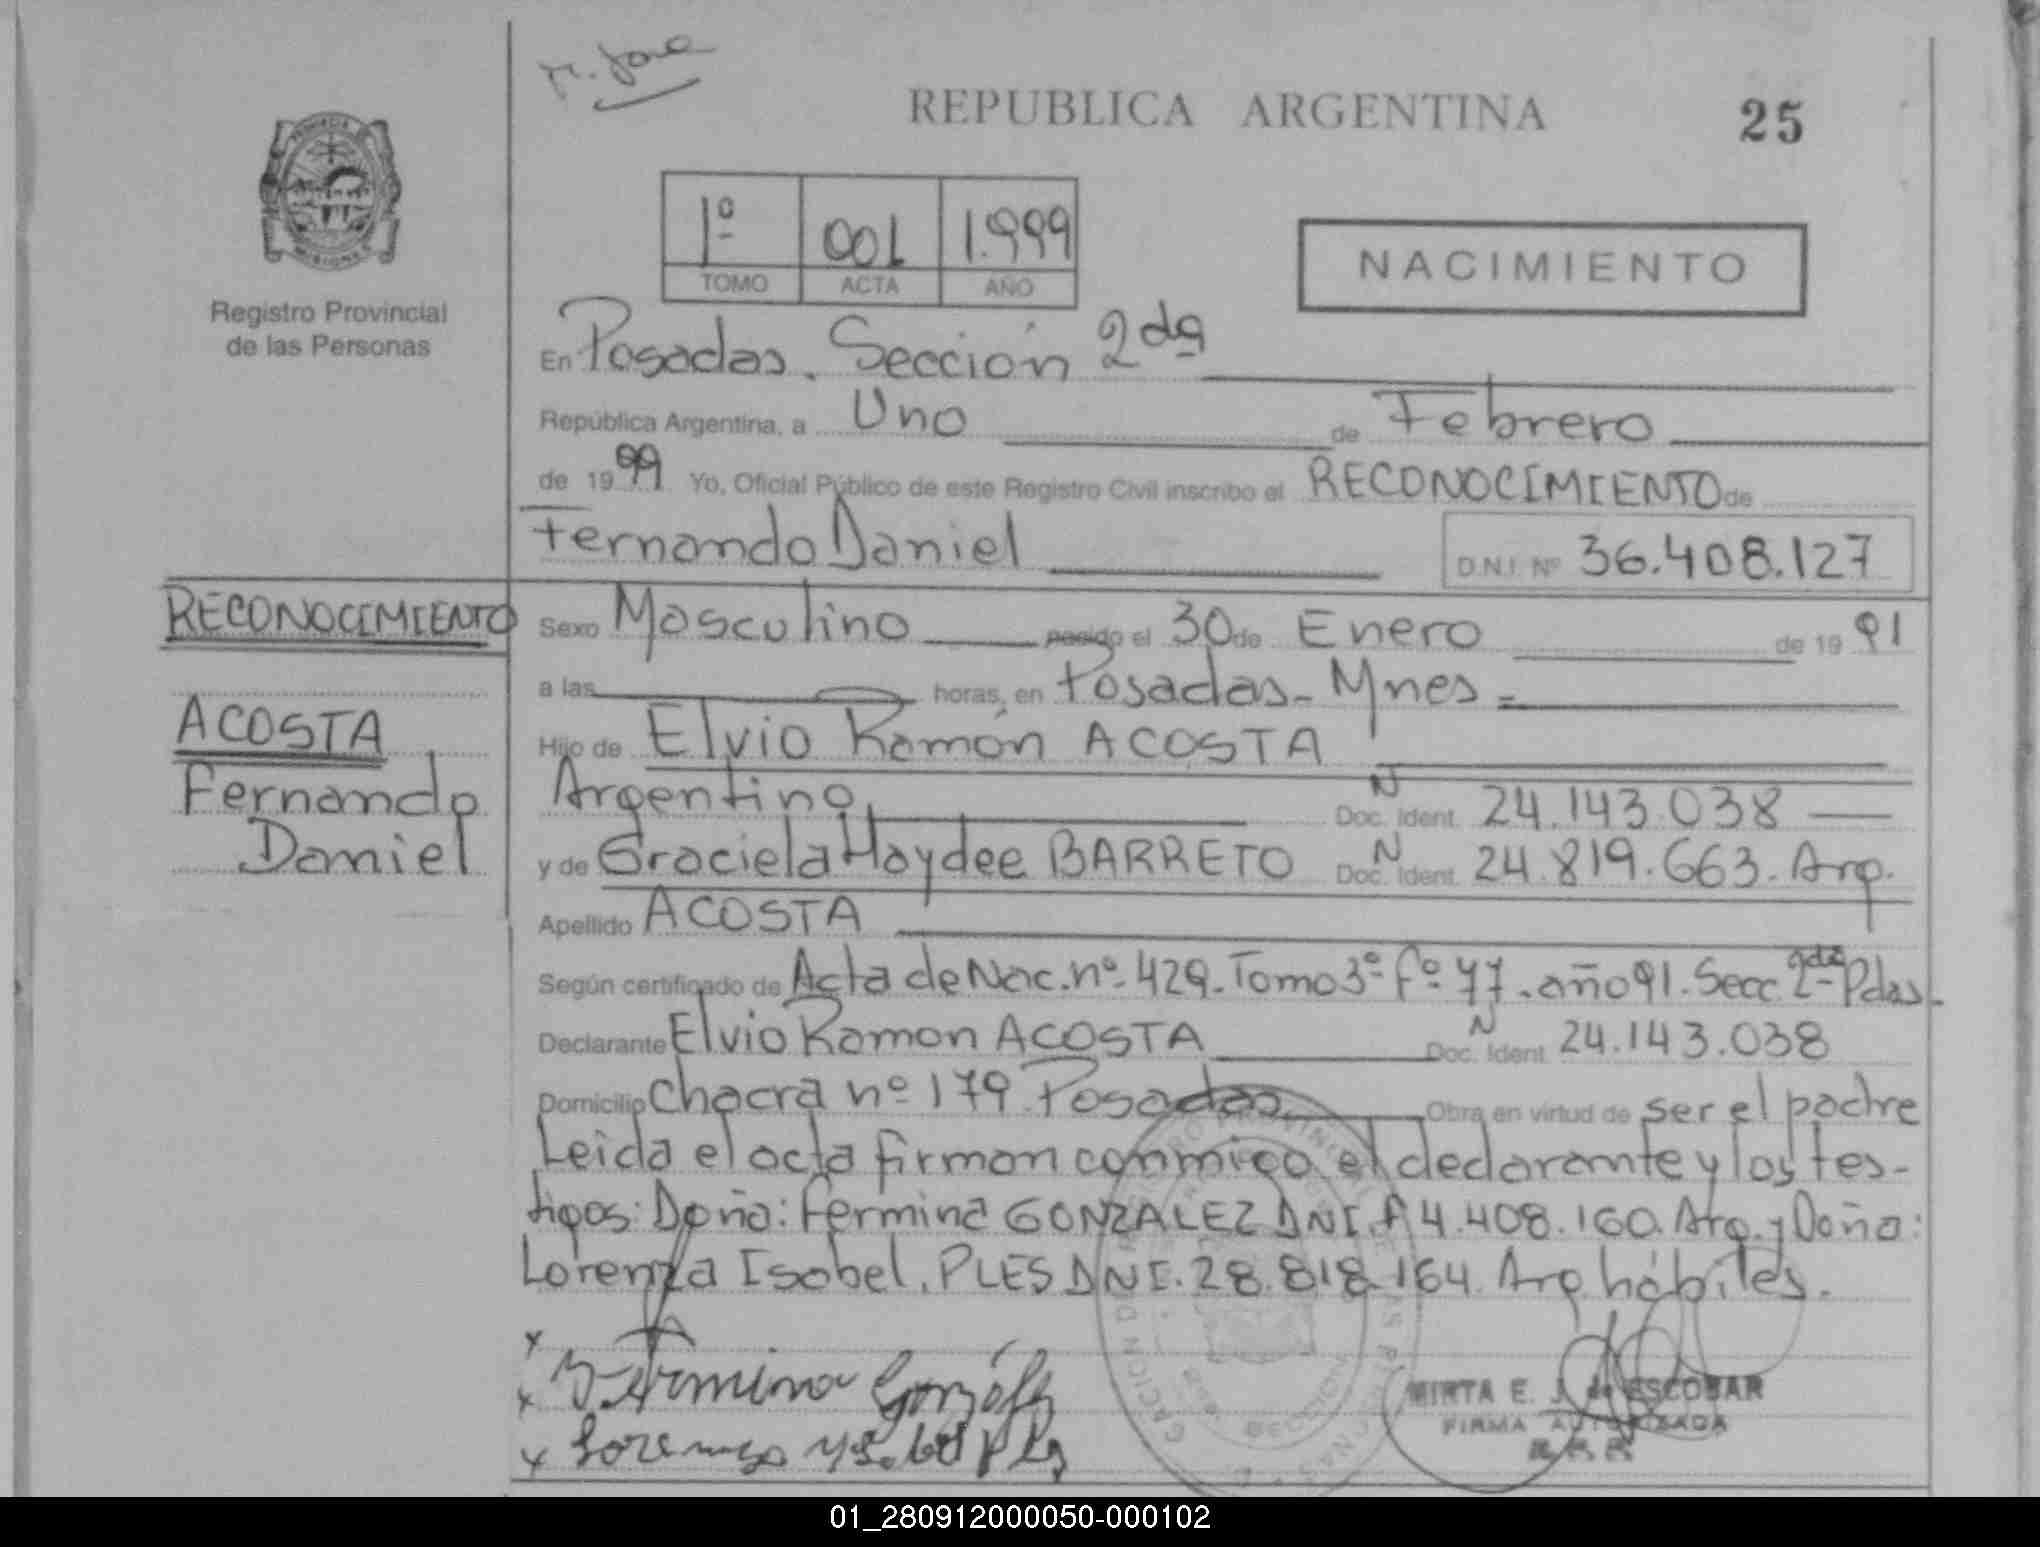 REPUBLICA ARGENTINA
25
PROVINCIA DE
MISIONES
Registro Provincial
de las Personas
1º 001 1.999
TOMO ACTA AÑO
NACIMIENTO
En Posadas. Sección 2da
República Argentina, a Uno de Febrero
de 1999 Yo, Oficial Público de este Registro Civil inscribo el RECONOCIMIENTO de
Fernando Daniel D.N.I. Nº 36.408.127
RECONOCIMIENTO
ACOSTA
Fernando
Daniel
Sexo Masculino nacido el 30 de Enero de 19 91
a las horas, en Posadas - Mnes =
Hijo de Elvio Ramón ACOSTA
Argentino N Doc. Ident. 24.143.038
y de Graciela Haydee BARRETO N Doc. Ident. 24.819.663. Arg.
Apellido ACOSTA
Según certificado de Acta de Nac. nº 429. Tomo 3º fº 77. año 91. Secc. 2da Pdas.
Declarante Elvio Ramon ACOSTA N Doc. Ident. 24.143.038
Domicilio Chacra nº 179. Posadas Obra en virtud de ser el padre
Leida el acta firman conmigo el declarante y los tes-
tigos: Doña: Fermina GONZALEZ DNI. F 4.408.160. Arg. y Doña:
Lorenza Isabel. PLES DNI. 28.818.164. Arg. hábiles.
x
x Fermina González
x Lorenza Ysabel Ples
MIRTA E. J. de ESCOBAR
FIRMA AUTORIZADA
01_280912000050-000102